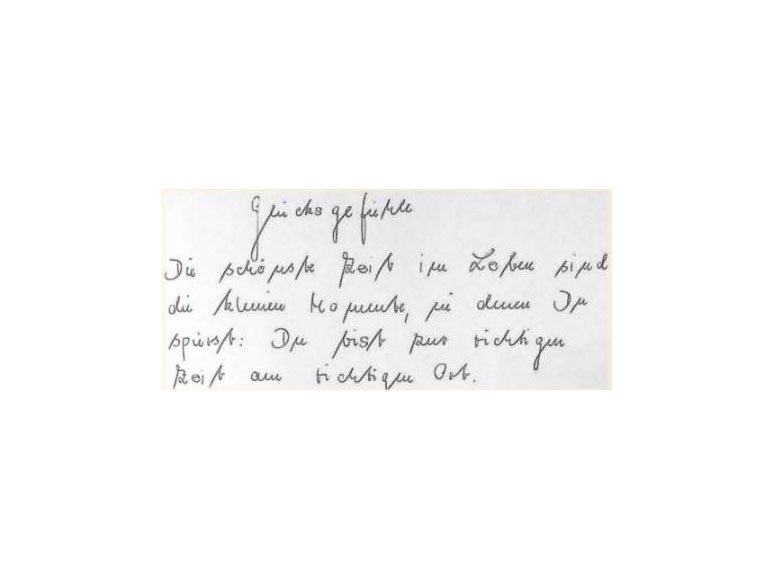 Glücksgefühle
Die schönste Zeit im Leben sind
die kleinen Momente, in denen Du
spürst: Du bist zur richtigen
Zeit am richtigen Ort.